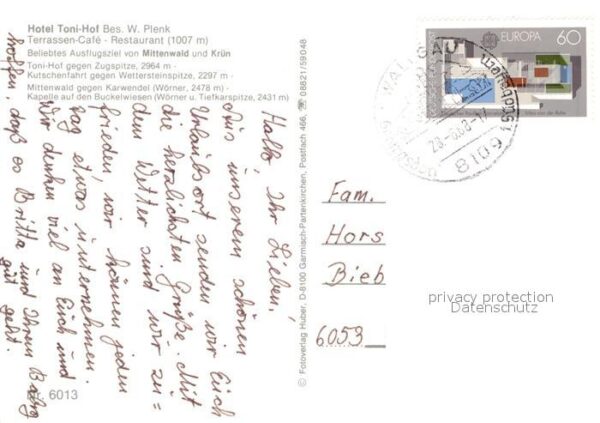 Hotel Toni-Hof Bes. W. Plenk
Terrassen-Café - Restaurant (1007 m)
Beliebtes Ausflugsziel von Mittenwald und Krün
Toni-Hof gegen Zugspitze, 2964 m -
Kutschenfahrt gegen Wettersteinspitze, 2297 m -
Mittenwald gegen Karwendel (Wörner, 2478 m) -
Kapelle auf den Buckelwiesen (Wörner u. Tiefkarspitze, 2431 m)
Hallo, Ihr Lieben!
Aus unserem schönen
Urlaubsort senden wir Euch
die herzlichsten Grüße. Mit
dem Wetter sind wir zu=
frieden, wir können jeden
Tag etwas unternehmen.
Wir denken viel an Euch und
hoffen, daß es Britta und Ihrem Baby
gut geht.
Nr. 6013
© Fotoverlag Huber, D-8100 Garmisch-Partenkirchen, Postfach 466, ☎ 08821/59048
EUROPA 60
WALLGAU
8109
Fam.
Hors
Bieb
6053
privacy protection
Datenschutz